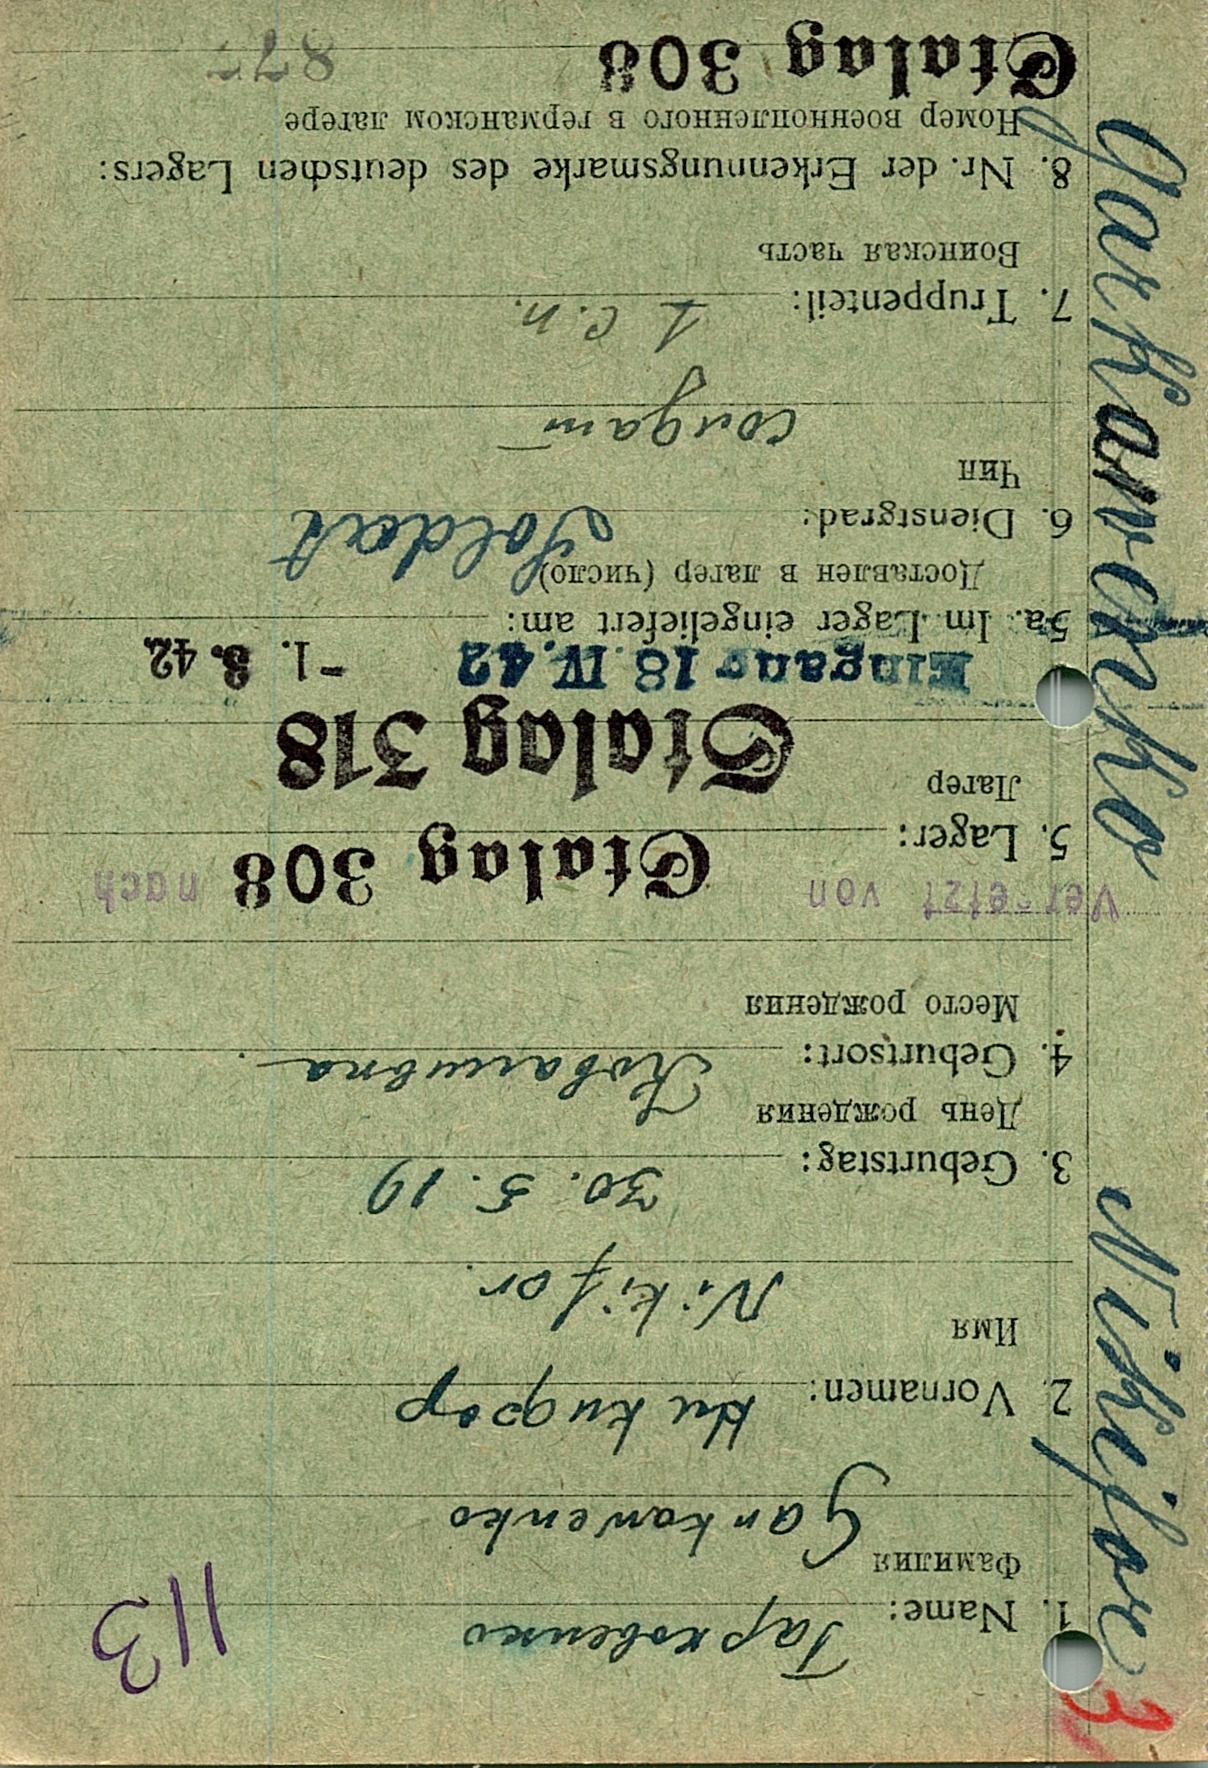 3
113
1. Name: Гарковенко
Фамилия
Garkawenko
2. Vornamen: Никифор
Имя
Nikifor.
3. Geburtstag: 30. 5. 19
День рождения
4. Geburtsort:
Место рождения
Versetzt von Stalag 308 nach
5. Lager:
Лагерь
Stalag 318
Eingang 18. IV. 42 -1. 8. 42
5a. Im Lager eingeliefert am:
Доставлен в лагерь (число)
6. Dienstgrad: Soldat
Чин
солдат
7. Truppenteil: 1 с.п.
Воинская часть
8. Nr. der Erkennungsmarke des deutschen Lagers:
Номер военнопленного в германском лагере
Stalag 308
Garkawenko Nikifor